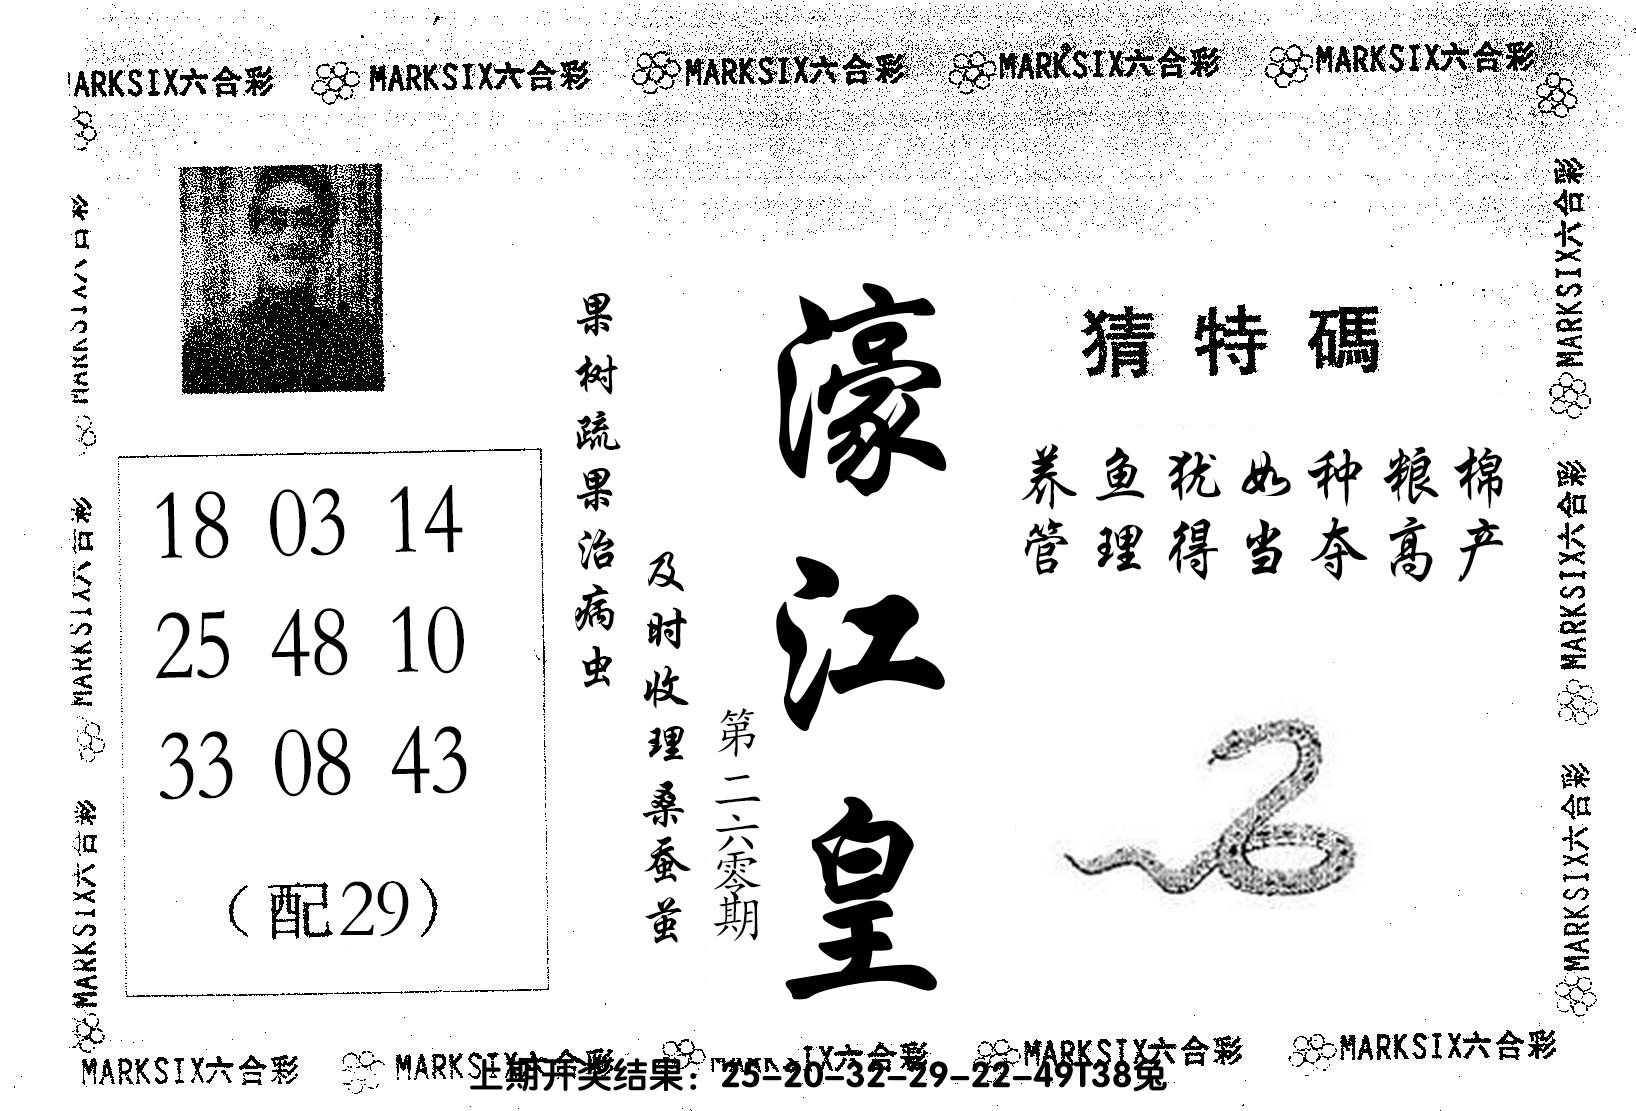 MARKSIX六合彩 MARKSIX六合彩 MARKSIX六合彩 MARKSIX六合彩 MARKSIX六合彩
猜特碼
养鱼犹如种粮棉
管理得当夺高产
濠江皇
第二六零期
果树疏果治病虫
及时收理桑蚕茧
18 03 14
25 48 10
33 08 43
（配29）
MARKSIX六合彩
MARKSIX六合彩
MARKSIX六合彩
MARKSIX六合彩
MARKSIX六合彩
MARKSIX六合彩
MARKSIX六合彩 MARKSIX六合彩 IX六合彩 MARKSIX六合彩 MARKSIX六合彩
上期开奖结果：25-20-32-29-22-49T38兔